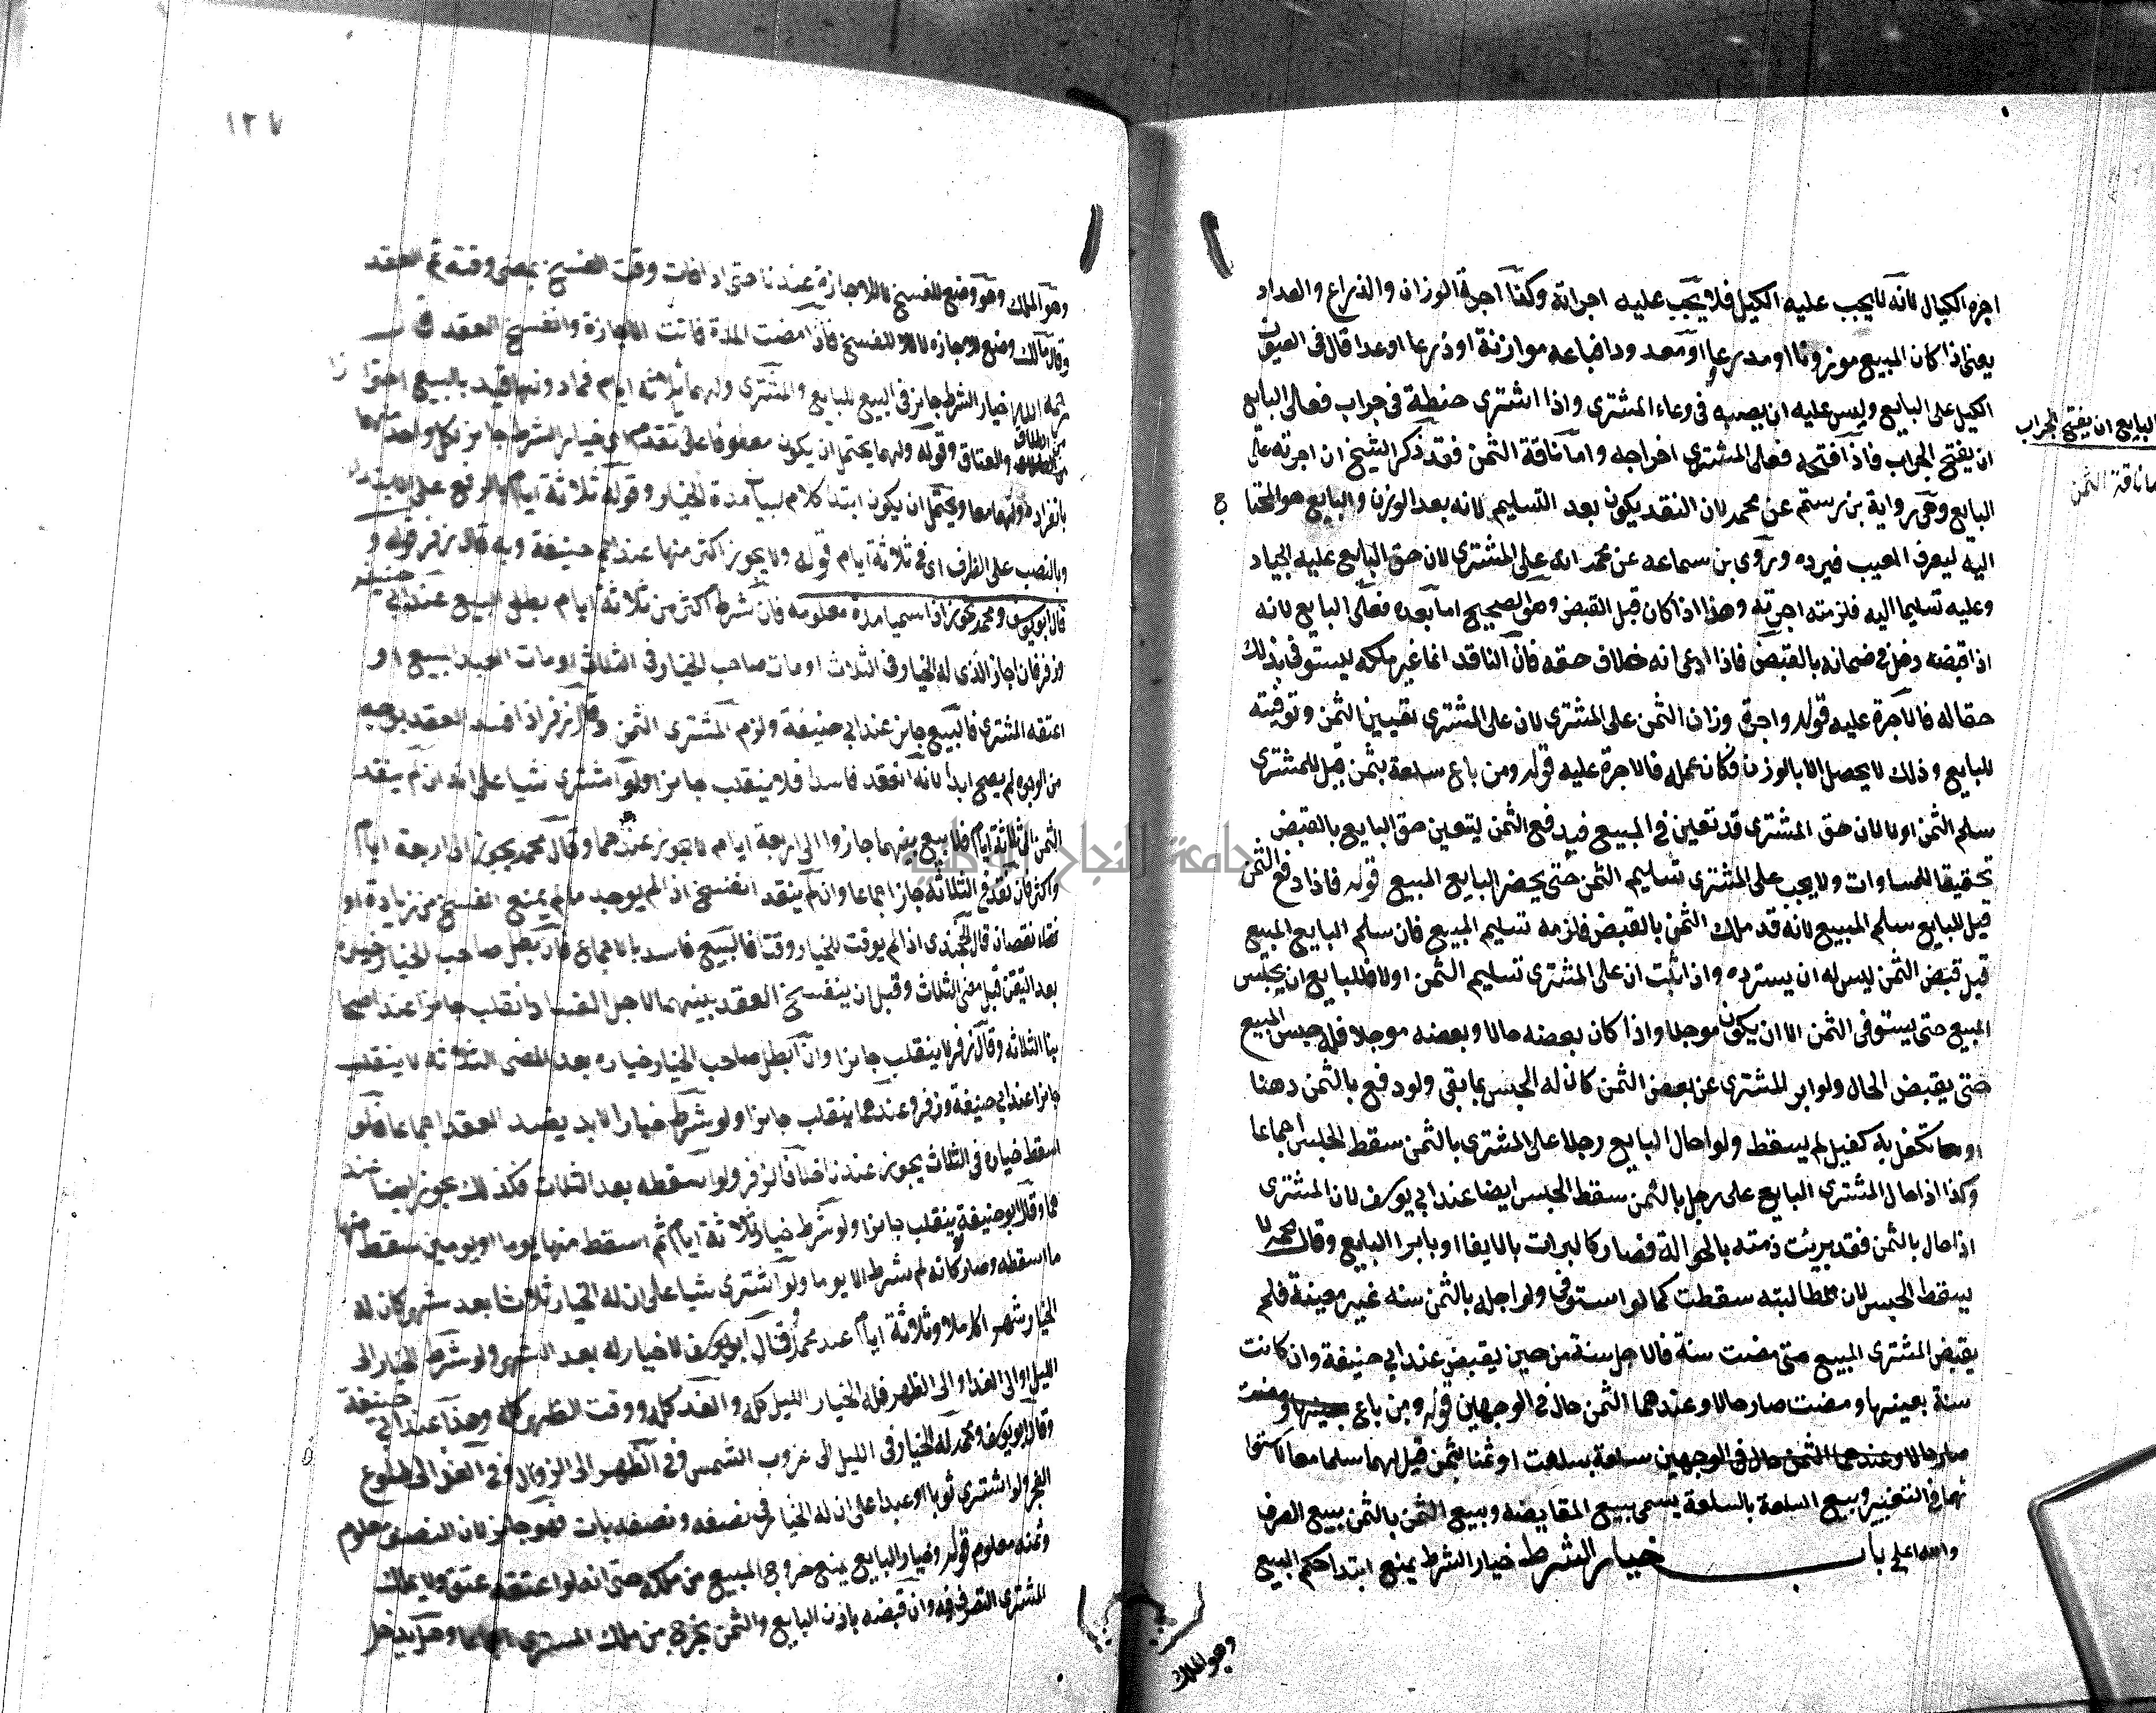 اجرة الكيال لانه لا يجب عليه الكيل فلا يجب عليه اجرته وكذا اجرة الوزان والذراع والعداد
يعني اذا كان المبيع موزونا او مذروعا او معدودا فباعه موازنة او ذرعا او عدا قال في العيون
الكيل على البايع وليس عليه ان يصبه في وعاء المشتري واذا اشترى حنطة في جراب فعلى البايع
ان يفتح الجراب فاذا فتحه فعلى المشتري اخراجه واما ناقد الثمن فقد ذكر الشيخ ان اجرته على
البايع وهي رواية بن رستم عن محمد لان النقد يكون بعد التسليم لانه بعد الوزن والبايع هو المحتاج
اليه ليعرف المعيب فيرده وروى بن سماعه عن محمد انه على المشتري لان حق البايع عليه الجياد
وعليه تسليمها اليه فلزمته اجرته وهذا اذا كان قبل القبض وهو الصحيح اما بعده فعلى البايع لانه
اذا قبضه دخل في ضمانه بالقبض فاذا ادعى انه خلاف حقه فان الناقد انما غير ملكه ليستوفي بذلك
حقا له فالاجرة عليه قوله واجرة وزان الثمن على المشتري لان على المشتري تعيين الثمن وتوفيته
للبايع وذلك لا يحصل الا بالوزن فكان عمله فالاجرة عليه قوله ومن باع سلعة بثمن قيل للمشتري
سلم الثمن اولا لان حق المشتري قد تعين في المبيع فيدفع الثمن ليتعين حق البايع بالقبض
تحقيقا للمساوات ولا يجب على المشتري تسليم الثمن حتى يحضر البايع المبيع قوله فاذا دفع الثمن
قيل للبايع سلم المبيع لانه قد ملك الثمن بالقبض فلزمه تسليم المبيع فان سلم البايع المبيع
قبل قبض الثمن ليس له ان يسترده واذا ثبت ان على المشتري تسليم الثمن اولا فللبايع ان يحبس
المبيع حتى يستوفي الثمن الا ان يكون موجلا واذا كان بعضه حالا وبعضه موجلا فله حبس المبيع
حتى يقبض الحال ولو ابر المشتري عن بعض الثمن كان له الحبس بما بقي ولو دفع بالثمن رهنا
او تكفل به كفيل لم يسقط ولو احال البايع رجلا على المشتري بالثمن سقط الحبس اجماعا
وكذا اذا احال المشتري البايع على رجل بالثمن سقط الحبس ايضا عند ابي يوسف لان المشتري
اذا احال بالثمن فقد بريت ذمته بالحوالة فصار كالبرات بالايفا او بابرا البايع وقال محمد لا
يسقط الحبس لان مطالبته سقطت كما لو استوفى ولو اجله بالثمن سنه غير معينة فلم
يقبض المشتري المبيع حتى مضت سنة فالاجل سنة من حين يقبض عند ابي حنيفة وان كانت
سنة بعينها ومضت صار حالا وعندهما الثمن حال في الوجهين قوله ومن باع بعينها ومضت
صار حالا وعندهما الثمن حال في الوجهين سلعة بسلعة او ثمنا بثمن قيل لهما سلما معا لاستوا
ئهما في التعيين وبيع السلعة بالسلعة يسمى بيع المقايضه وبيع الثمن بالثمن بيع الصرف
والله اعلم باب خيار الشرط خيار الشرط يمنع ابتدا حكم البيع
وهو الملك
البايع ان يفتح الجراب
اما ناقد الثمن
١٢٧
وهو الملك وهو وضع للفسخ لا للاجازة عندنا حتى اذا فات وقت الفسخ بمضي وقته تم العقد
وقال مالك وضع للاجازه لا للفسخ فاذا مضت المدة فاتت الاجازة وانفسخ العقد قال
رحمه الله خيار الشرط جايز في البيع للبايع والمشتري ولهما ثلاثة ايام فما دونها قيد بالبيع احترازا
من الطلاق والعتاق وقوله ولهما يحتمل ان يكون معطوفا على ما تقدم اي خيار الشرط جايز لكل واحد منهما
بانفراده ولهما معا ويحتمل ان يكون ابتدا كلام لبيان مدة الخيار وقوله ثلاثة ايام بالرفع على الابتداء
وبالنصب على الظرف اي في ثلاثة ايام قوله ولا يجوز اكثر منها عند ابي حنيفة وبه قال زفر قوله و
قال ابو يوسف ومحمد يجوز اذا سميا مدة معلومه فان شرط اكثر من ثلاثة ايام بطل البيع عند ابي حنيفة
وزفر فان اجاز الذي له الخيار في الثلاث او مات صاحب الخيار في الثلاث او مات العبد المبيع او
اعتقه المشتري فالبيع جايز عند ابي حنيفة ولزم المشتري الثمن وقال زفر اذا فسد العقد بوجه
من الوجوه لم يصح ابدا لانه انعقد فاسدا فلا ينقلب جايزا ولو اشترى شيا على انه ان لم ينقد
الثمن الى ثلاثة ايام فلا بيع بينهما جاز والى اربعة ايام لا يجوز عندهما وقال محمد يجوز الى اربعة ايام
واكثر فان نقد في الثلاثه جاز اجماعا وان لم ينقد انفسخ اذا لم يوجد ما يمنع الفسخ من زيادة او
نقصان قال الخجندي اذا لم يوقت للخيار وقتا فالبيع فاسد بالاجماع فان بطل صاحب الخيار خياره
قبل مضي الثلاث وقبل ان ينفسخ العقد بينهما لاجل الفساد انقلب جايزا عند اصحا
بنا الثلاثه وقال زفر لا ينقلب جايزا وان ابطل صاحب الخيار خياره بعد المضي الثلاثه لا ينقلب
جايزا عند ابي حنيفة وزفر وعندهما ينقلب جايزا ولو شرط خيار الابد يفسد العقد اجماعا فلو
اسقط خياره في الثلاث يجوز عندنا خلافا لزفر ولو اسقطه بعد الثلاث فكذلك يجوز ايضا عند
هما وقال ابو حنيفة ينقلب جايزا ولو شرط خيار ثلاثة ايام ثم اسقط منها يوما او يومين سقط منها
ما اسقطه وصار كانه لم يشرط الا يوما ولو اشترى شيا على ان له الخيار ثلاثا بعد شهر كان له
الخيار شهرا كاملا وثلاثة ايام عند محمد وقال ابو يوسف لا خيار له بعد الشهر ولو شرط الخيار الى
الليل او الى الغد او الى الظهر فله الخيار الليل كله والغد كله ووقت الظهر كله وهذا عند ابي حنيفة
وقال ابو يوسف ومحمد له الخيار في الليل الى غروب الشمس وفي الظهر الى الزوال وفي الغد الى طلوع
الفجر ولو اشترى ثوبا او عبدا على ان له الخيار في نصفه ونصفه بات فهو جايز لان النصف معلوم
وثمنه معلوم قوله وخيار البايع يمنع خروج المبيع من ملكه حتى انه لو اعتقه عتق ولا يملك
المشتري التصرف فيه وان قبضه باذن البايع والثمن يخرج من ملك المشتري اجماعا وهل يدخل
جامعة النجاح الوطنية